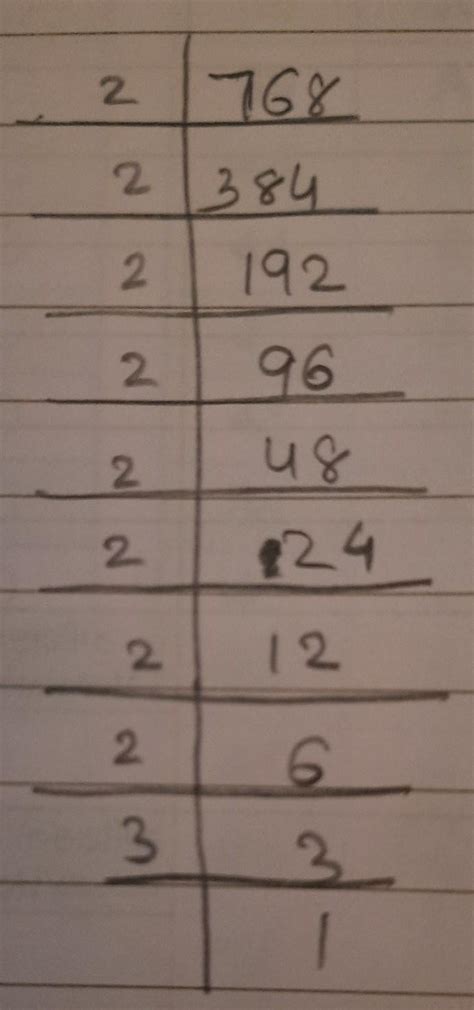 2 768
2 384
2 192
2 96
2 48
2 24
2 12
2 6
3 3
1